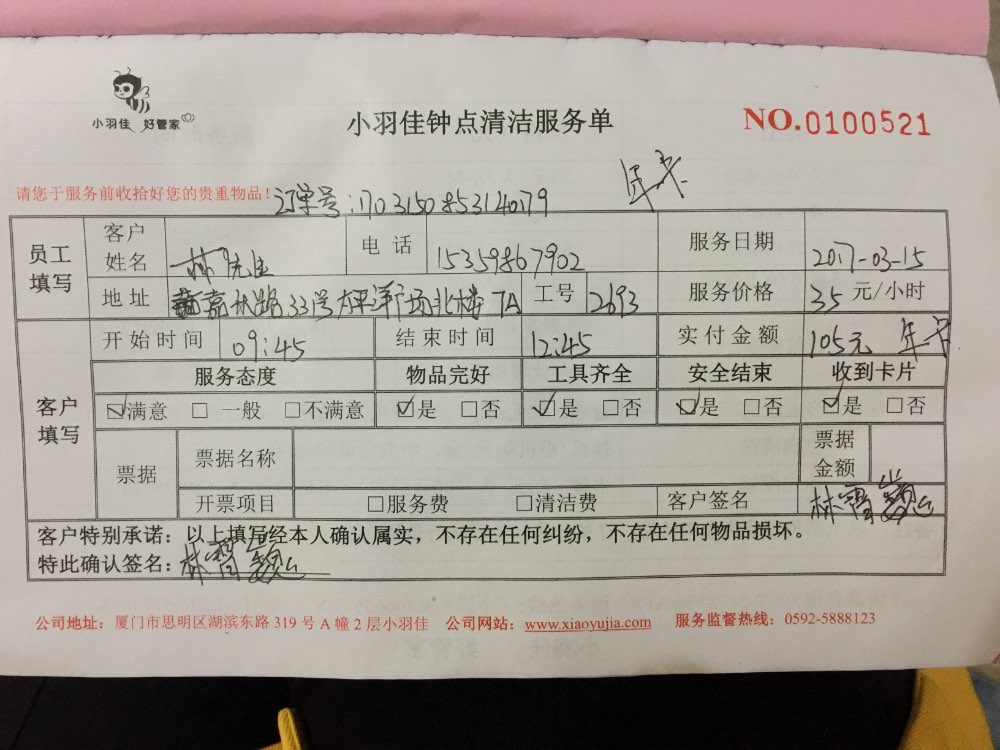 小羽佳 好管家
小羽佳钟点清洁服务单
NO.0100521
年卡
请您于服务前收拾好您的贵重物品！订单号:170315085314079
员工填写 客户姓名 林先生 电话 15359867902 服务日期 2017-03-15
地址 嘉禾路33号太平洋广场北楼7A 工号 2693 服务价格 35 元/小时
客户填写 开始时间 09:45 结束时间 12:45 实付金额 105元 年卡
服务态度 物品完好 工具齐全 安全结束 收到卡片
☑满意 □ 一般 □不满意 ☑是 □否 ☑是 □否 ☑是 □否 ☑是 □否
票据 票据名称 票据金额
开票项目 □服务费 □清洁费 客户签名 林
客户特别承诺：以上填写经本人确认属实，不存在任何纠纷，不存在任何物品损坏。
特此确认签名：林
公司地址：厦门市思明区湖滨东路 319 号 A 幢 2 层小羽佳 公司网站：www.xiaoyujia.com 服务监督热线：0592-5888123